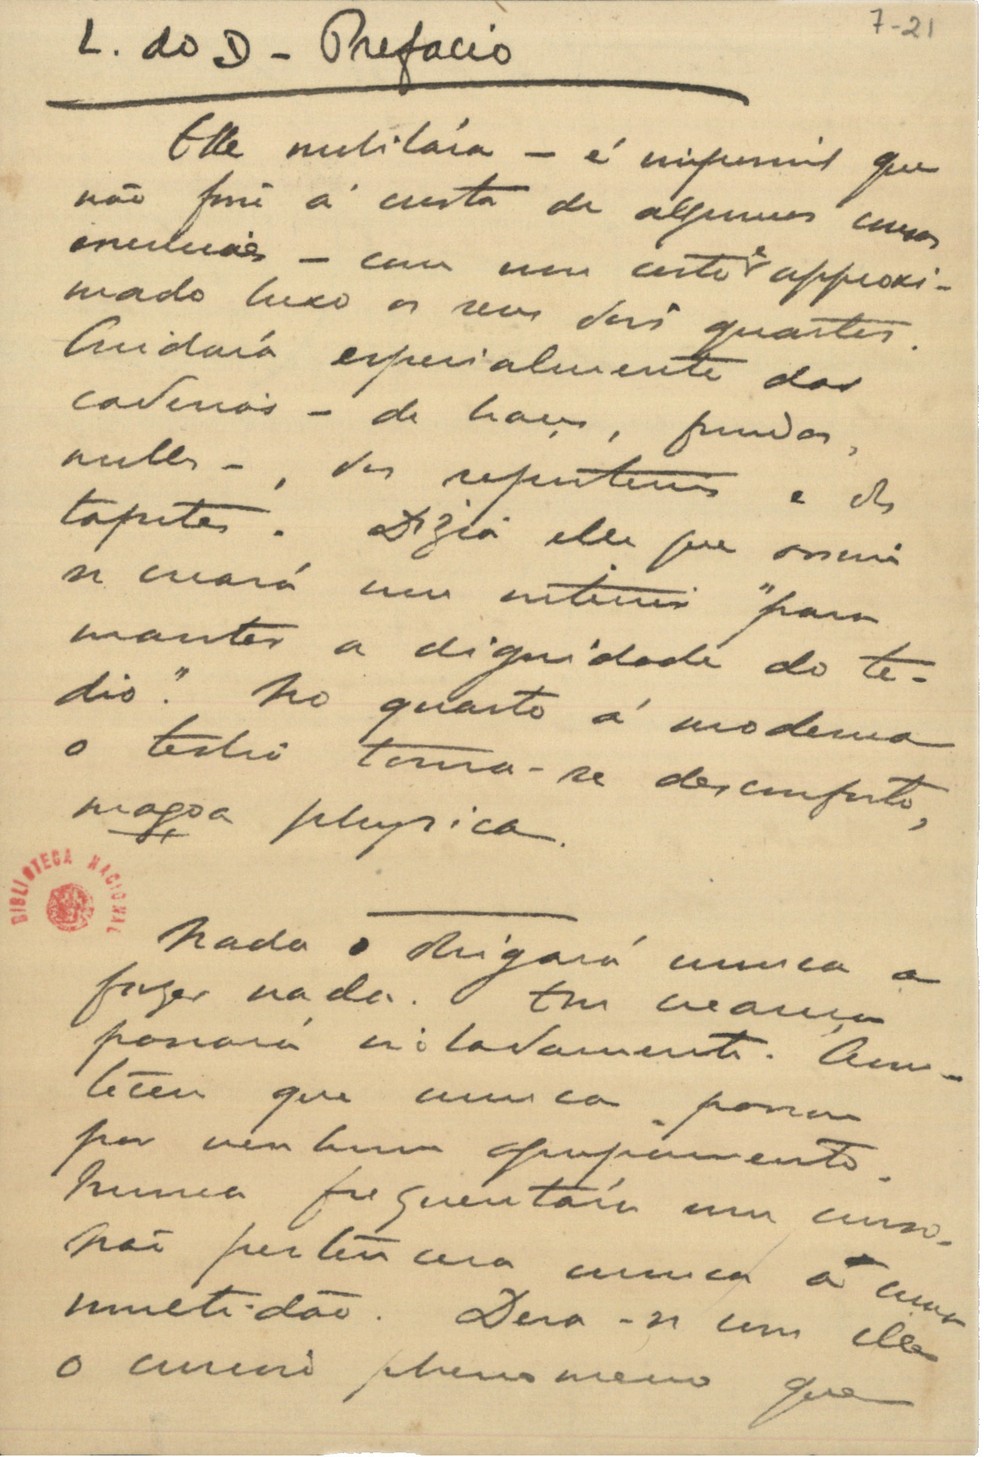 L. do D - Prefacio
7-21
Elle mobilára - é impossivel que
não fosse á custa de algumas cousas
essenciaes - com um certo e approxi-
mado luxo os seus dois quartos.
Cuidara especialmente das
cadeiras - de braços, fundas,
molles -, dos reposteiros e dos
tapetes. Dizia elle que assim
se creara um interior "para
manter a dignidade do te-
dio". No quarto á moderna
o tedio torna-se desconforto,
magoa physica.
BIBLIOTECA NACIONAL
Nada o obrigara nunca a
fazer nada. Em creança
passara isoladamente. Acon-
teceu que nunca passou
por nenhum agrupamento.
Nunca frequentara um curso.
Não pertencera nunca a uma
multidão. Dera-se com elle
o curioso phenomeno que